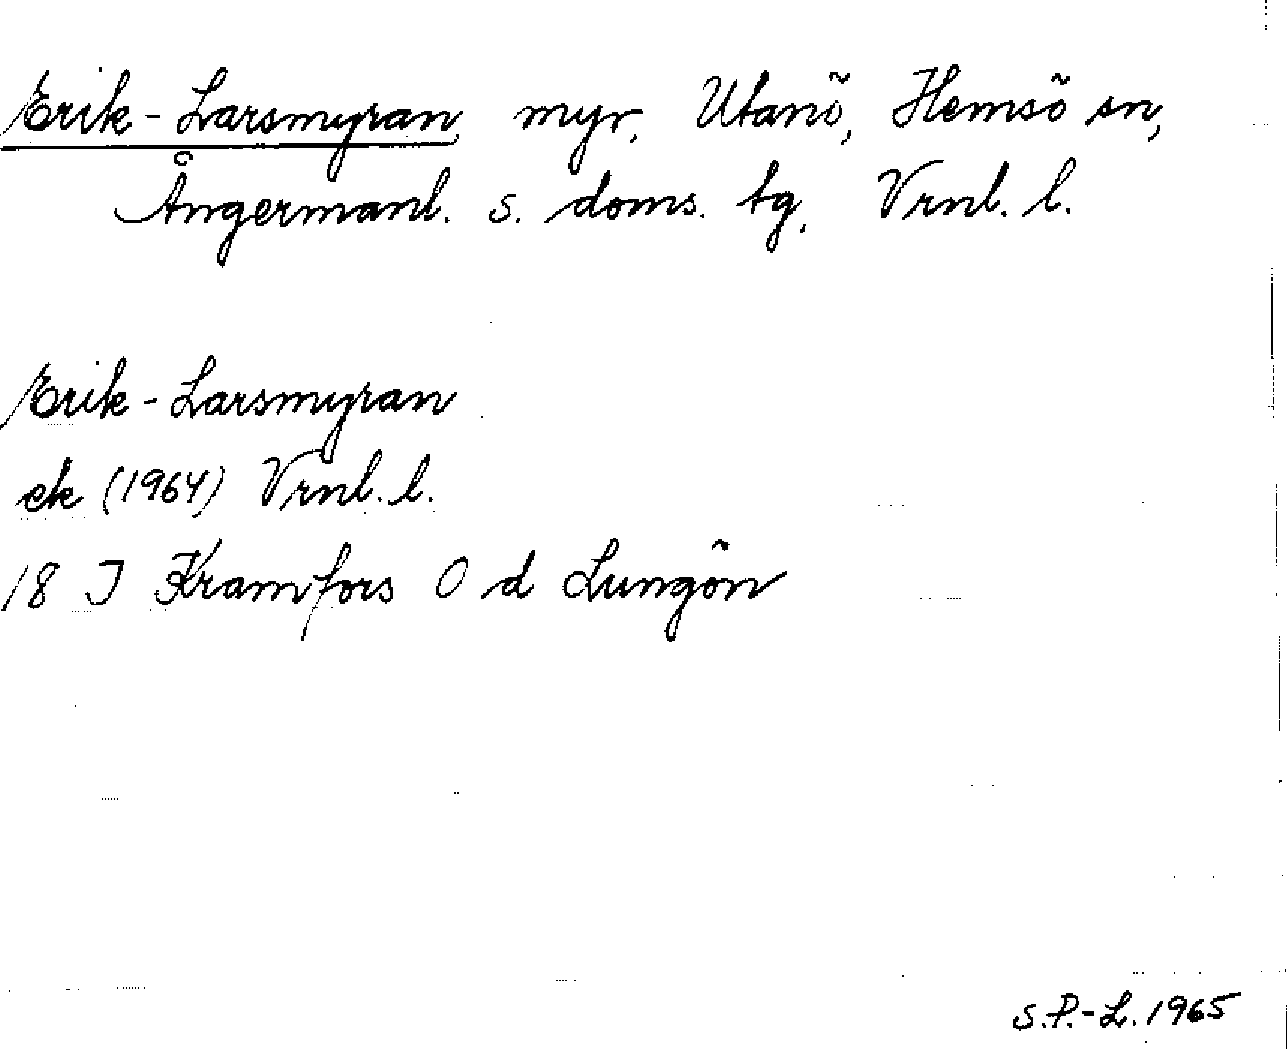 Erik-Larsmyran, myr, Utanö, Hemsö sn,
Ångermanl. s. doms. tg, Vrnl. l.
Erik-Larsmyran
ek (1964) Vrnl. l.
18 I Kramfors O d Lungön
S.P.-L. 1965